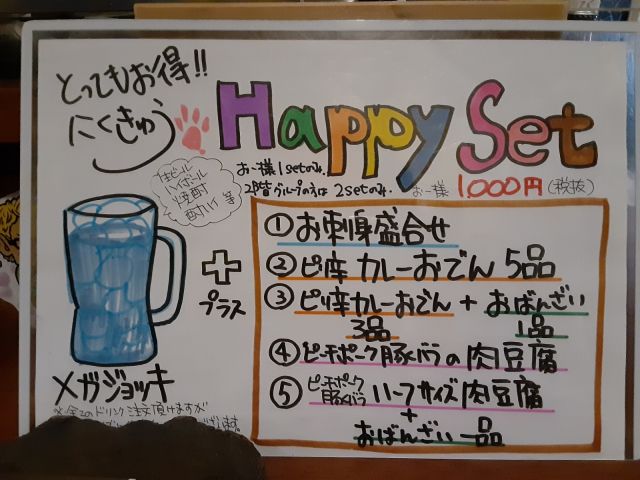 とってもお得!!
にくきゅう
Happy Set
お一様1setのみ.
2階グループの方は 2setのみ.
お一様 1.000円(税抜)
生ビール
ハイボール
焼酎
酎ハイ 等
+
プラス
メガジョッキ
①お刺身盛合せ
②ピリ辛カレーおでん 5品
③ピリ辛カレーおでん + おばんざい
3品 1品
④ピーチポーク豚バラの肉豆腐
⑤ピーチポーク豚バラ ハーフサイズ肉豆腐
+
おばんざい一品